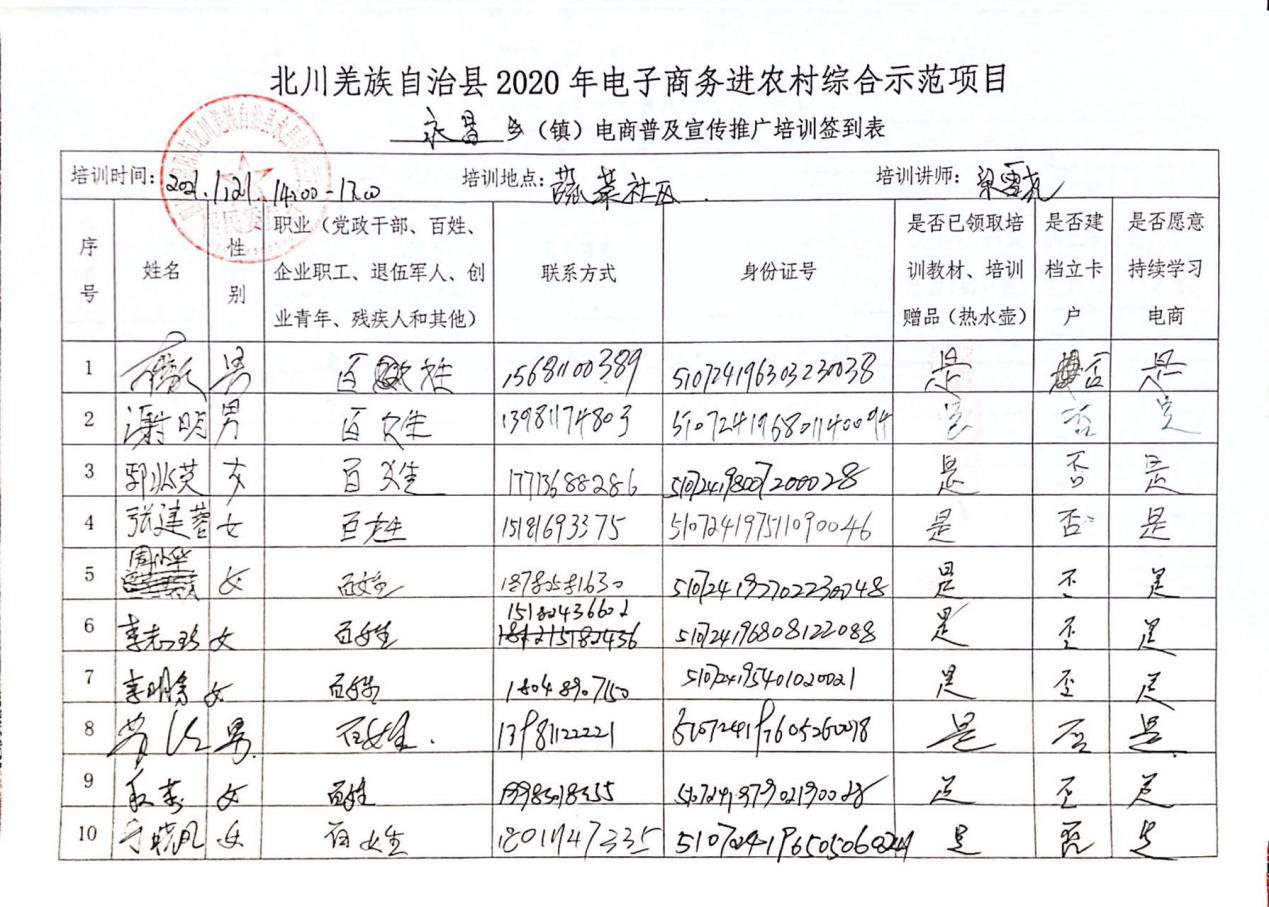 北川羌族自治县 2020 年电子商务进农村综合示范项目
永昌 乡（镇）电商普及宣传推广培训签到表
培训时间：2021.1.21. 14:00-17:00 培训地点：蔬菜社区 培训讲师：
序号 姓名 性别 职业（党政干部、百姓、企业职工、退伍军人、创业青年、残疾人和其他） 联系方式 身份证号 是否已领取培训教材、培训赠品（热水壶） 是否建档立卡户 是否愿意持续学习电商
1 男 百姓 15681100389 510724196303230038 是 否 是
2 谢明 男 百姓 13981174803 510724196801140094 是 否 是
3 女 百姓 17713688286 510724198007200028 是 否 是
4 张建蓉 女 百姓 15181693375 510724197511090046 是 否 是
5 周小华 女 百姓 510724197702230048 是 否 是
6 女 百姓 15182436602 510724196808122088 是 否 是
7 李明秀 女 百姓 18048907150 510724195401020021 是 否 是
8 男 百姓 13981122221 510724197605260018 是 否 是
9 女 百姓 510724197902190028 是 否 是
10 女 百姓 18011147335 是 否 是